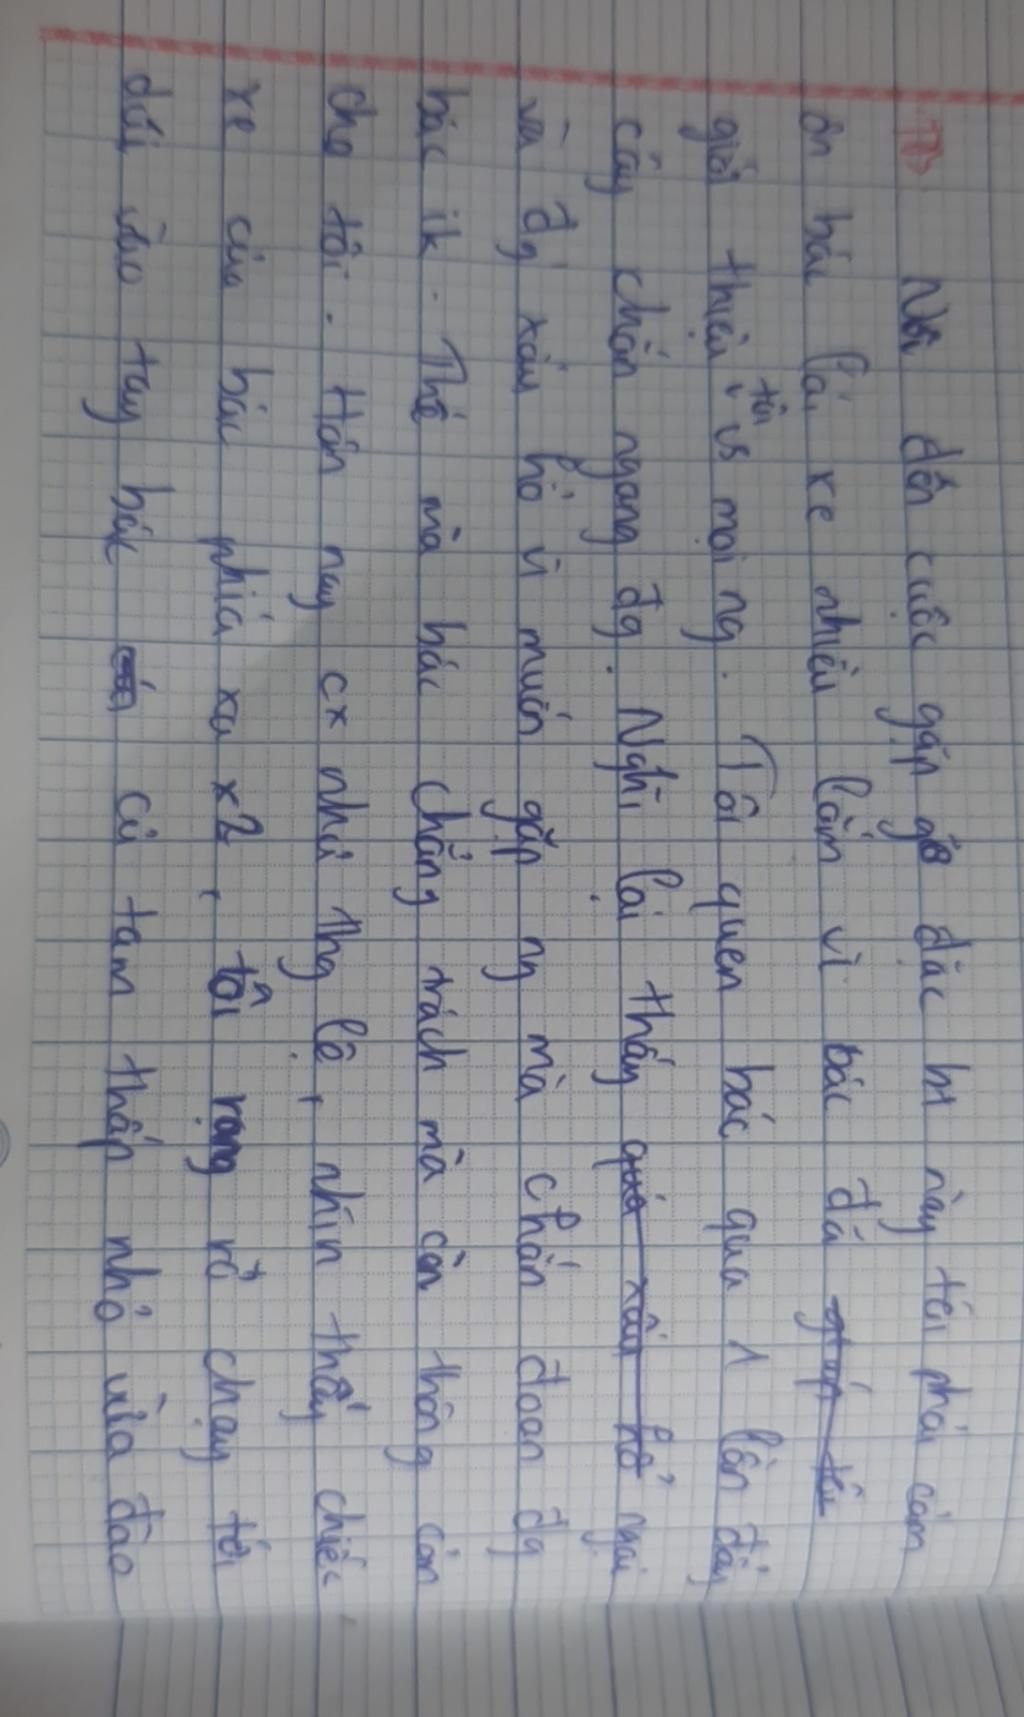 Nói đến cuộc gặp gỡ đặc bt này tôi phải cảm
ơn bác lái xe nhiều lần vì bác đã giúp tôi
giới thiệu tôi vs mọi ng. Tôi quen bác qua 1 lần đẩy
cây chắn ngang đg. Nghĩ lại thấy quá xấu hổ ngại
và đg' xấu hổ vì muốn gặp ng mà chắn đoạn đg
bác ik. Thế mà bác chẳng trách mà còn thông cảm
cho tôi. Hôm nay cx như thg lệ, nhìn thấy chiếc
xe của bác phía xa x2, tôi rạng rỡ chạy tới
dúi vào tay bác củ tam thất nhỏ vừa đào